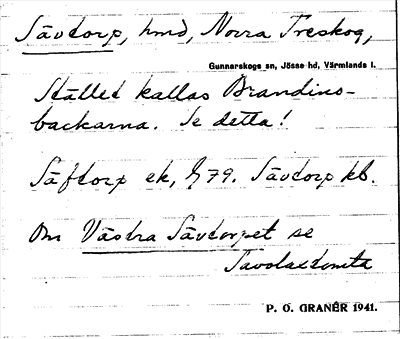 Sävtorp, hmd, Norra Treskog,
Gunnarskogs sn, Jösse hd, Värmlands l.
Stället kallas Brandins-
backarna. Se detta!
Säftorp ek, G 79. Sävtorp kb.
Om Västra Sävtorpet se
Savolaxtomta
P. O. GRANÉR 1941.